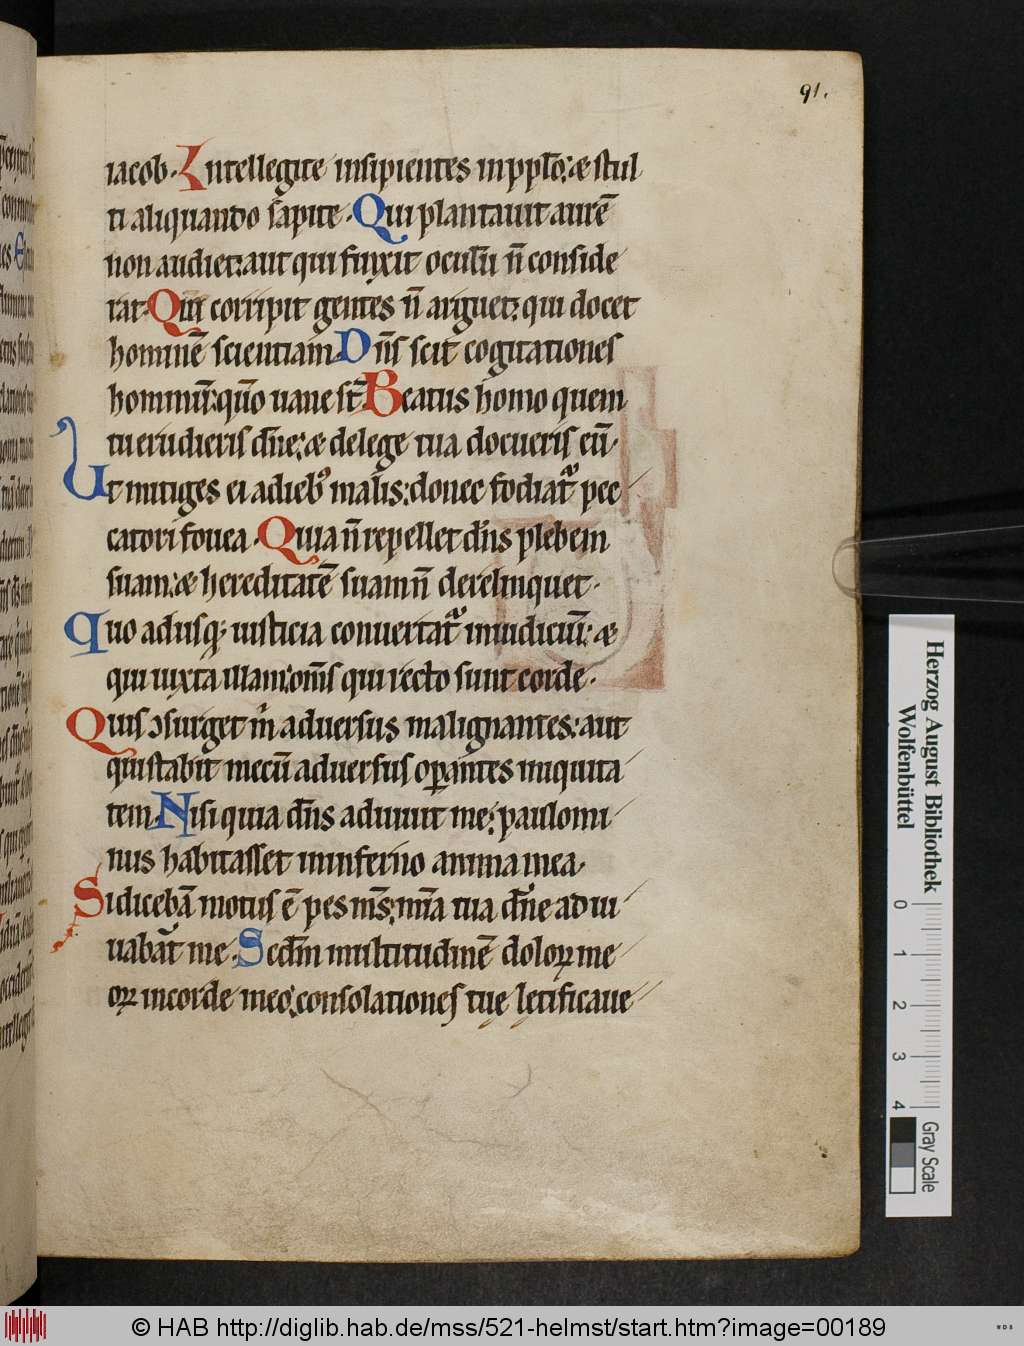 91.
iacob. Intellegite insipientes in pplo: æ stul
ti aliquando sapite. Qui plantauit aurē
non audiet: aut qui finxit oculū n̄ conside
rat. Qui corripit gentes n̄ arguet: qui docet
hominē scientiam. Dn̄s scit cogitationes
hominū: qm̄o uane st̄. Beatus homo quem
tu erudieris dn̄e: æ de lege tua docueris eū.
Ut mitiges ei a dieb᷒ malis: donec fodiat᷑ pec
catori fouea. Quia n̄ repellet dn̄s plebem
suam: æ hereditatē suam n̄ derelinquet.
Quo adusq; iusticia conuertat᷑ in iudiciū: æ
qui iuxta illam: om̄s qui recto sunt corde.
Quis ↄsurget m̄ aduersus malignantes: aut
qui stabit mecū aduersus oꝑantes iniquita
tem. Nisi quia dn̄s adiuuit me: paulomi
nus habitasset in inferno anima mea.
Si dicebā motus ē pes ms̄: mīa tua dn̄e adiu
uabāt me. Scdm̄ multitudinē doloꝝ me
oꝝ in corde meo: consolationes tuę lętificaue
Herzog August Bibliothek
Wolfenbüttel
0 1 2 3 4
Gray Scale
© HAB http://diglib.hab.de/mss/521-helmst/start.htm?image=00189
WDB